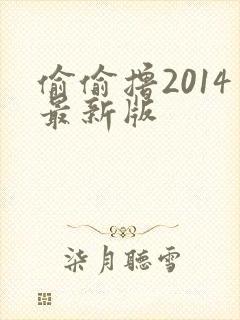 偷偷撸2014
最新版
柒月聽雪